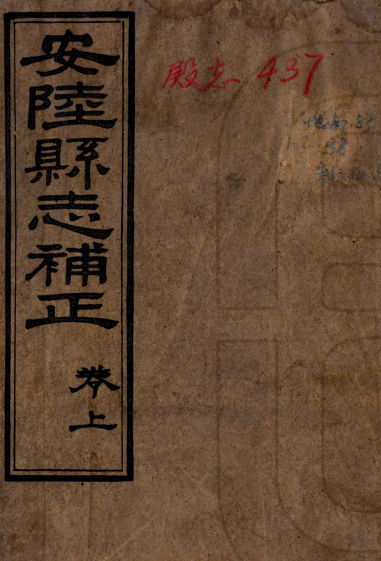 安陸縣志補正
卷上
殿志 437